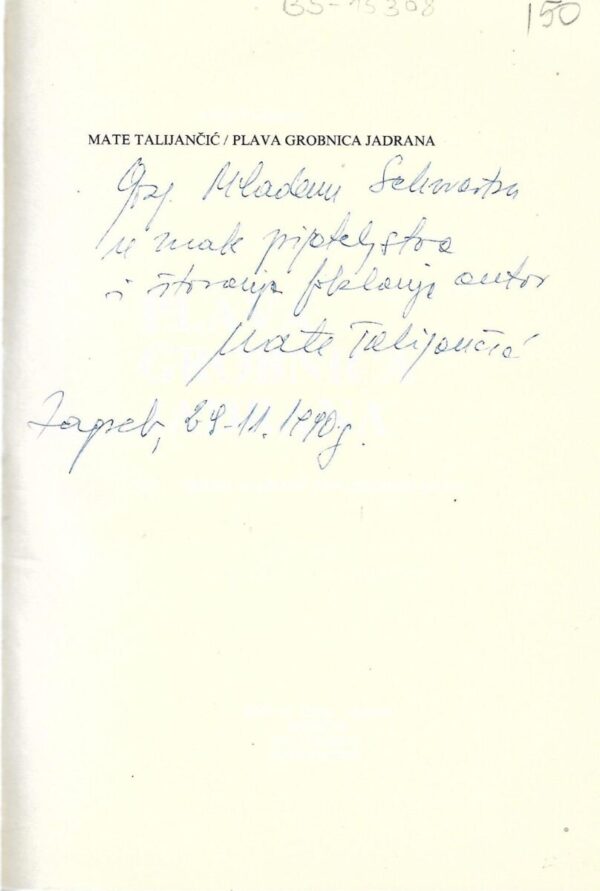 BS-15308
150
MATE TALIJANČIĆ / PLAVA GROBNICA JADRANA
Gosp. Mladenu Schwartzu
u znak prijateljstva
i štovanja poklanja autor
Mate Talijančić
Zagreb, 29-11.1990g.